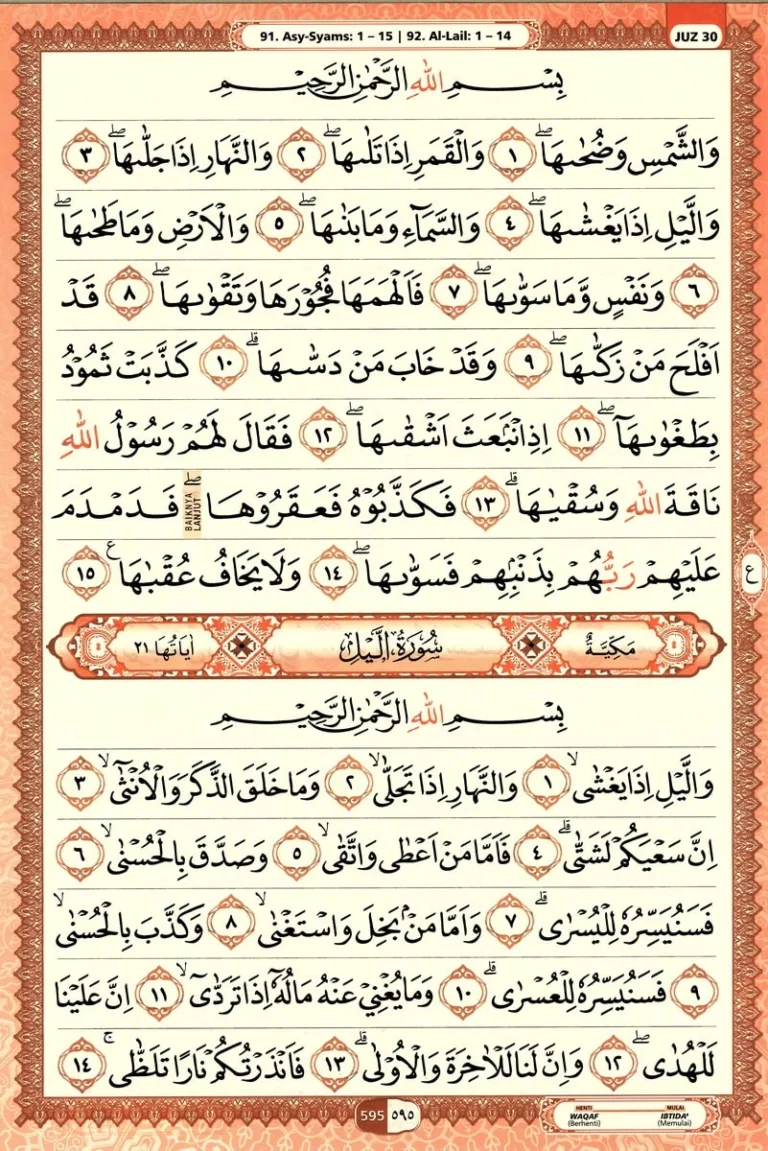 91. Asy-Syams: 1 – 15 | 92. Al-Lail: 1 – 14
JUZ 30
بِسْمِ اللّٰهِ الرَّحْمٰنِ الرَّحِيْمِ
وَالشَّمْسِ وَضُحٰىهَاۖ ١ وَالْقَمَرِ اِذَا تَلٰىهَاۖ ٢ وَالنَّهَارِ اِذَا جَلّٰىهَاۖ ٣
وَالَّيْلِ اِذَا يَغْشٰىهَاۖ ٤ وَالسَّمَاۤءِ وَمَا بَنٰىهَاۖ ٥ وَالْاَرْضِ وَمَا طَحٰىهَاۖ
٦ وَنَفْسٍ وَّمَا سَوّٰىهَاۖ ٧ فَاَلْهَمَهَا فُجُوْرَهَا وَتَقْوٰىهَاۖ ٨ قَدْ
اَفْلَحَ مَنْ زَكّٰىهَاۖ ٩ وَقَدْ خَابَ مَنْ دَسّٰىهَاۗ ١٠ كَذَّبَتْ ثَمُوْدُ
بِطَغْوٰىهَآۖ ١١ اِذِ انْۢبَعَثَ اَشْقٰىهَاۖ ١٢ فَقَالَ لَهُمْ رَسُوْلُ اللّٰهِ
نَاقَةَ اللّٰهِ وَسُقْيٰهَاۗ ١٣ فَكَذَّبُوْهُ فَعَقَرُوْهَاۖ BAIKNYA LANJUT فَدَمْدَمَ
عَلَيْهِمْ رَبُّهُمْ بِذَنْۢبِهِمْ فَسَوّٰىهَاۖ ١٤ وَلَا يَخَافُ عُقْبٰهَا ࣖ ١٥
ع
مَكِّيَّةٌ سُوْرَةُ الَّيْلِ اٰيَاتُهَا ٢١
بِسْمِ اللّٰهِ الرَّحْمٰنِ الرَّحِيْمِ
وَالَّيْلِ اِذَا يَغْشٰىۙ ١ وَالنَّهَارِ اِذَا تَجَلّٰىۙ ٢ وَمَا خَلَقَ الذَّكَرَ وَالْاُنْثٰىٓۙ ٣
اِنَّ سَعْيَكُمْ لَشَتّٰىۗ ٤ فَاَمَّا مَنْ اَعْطٰى وَاتَّقٰىۙ ٥ وَصَدَّقَ بِالْحُسْنٰىۙ ٦
فَسَنُيَسِّرُهٗ لِلْيُسْرٰىۗ ٧ وَاَمَّا مَنْۢ بَخِلَ وَاسْتَغْنٰىۙ ٨ وَكَذَّبَ بِالْحُسْنٰىۙ
٩ فَسَنُيَسِّرُهٗ لِلْعُسْرٰىۗ ١٠ وَمَا يُغْنِيْ عَنْهُ مَالُهٗٓ اِذَا تَرَدّٰىٓۙ ١١ اِنَّ عَلَيْنَا
لَلْهُدٰىۖ ١٢ وَاِنَّ لَنَا لَلْاٰخِرَةَ وَالْاُوْلٰىۗ ١٣ فَاَنْذَرْتُكُمْ نَارًا تَلَظّٰىۚ ١٤
595 ٥٩٥
HENTI MULAI
WAQAF IBTIDA'
(Berhenti) (Memulai)